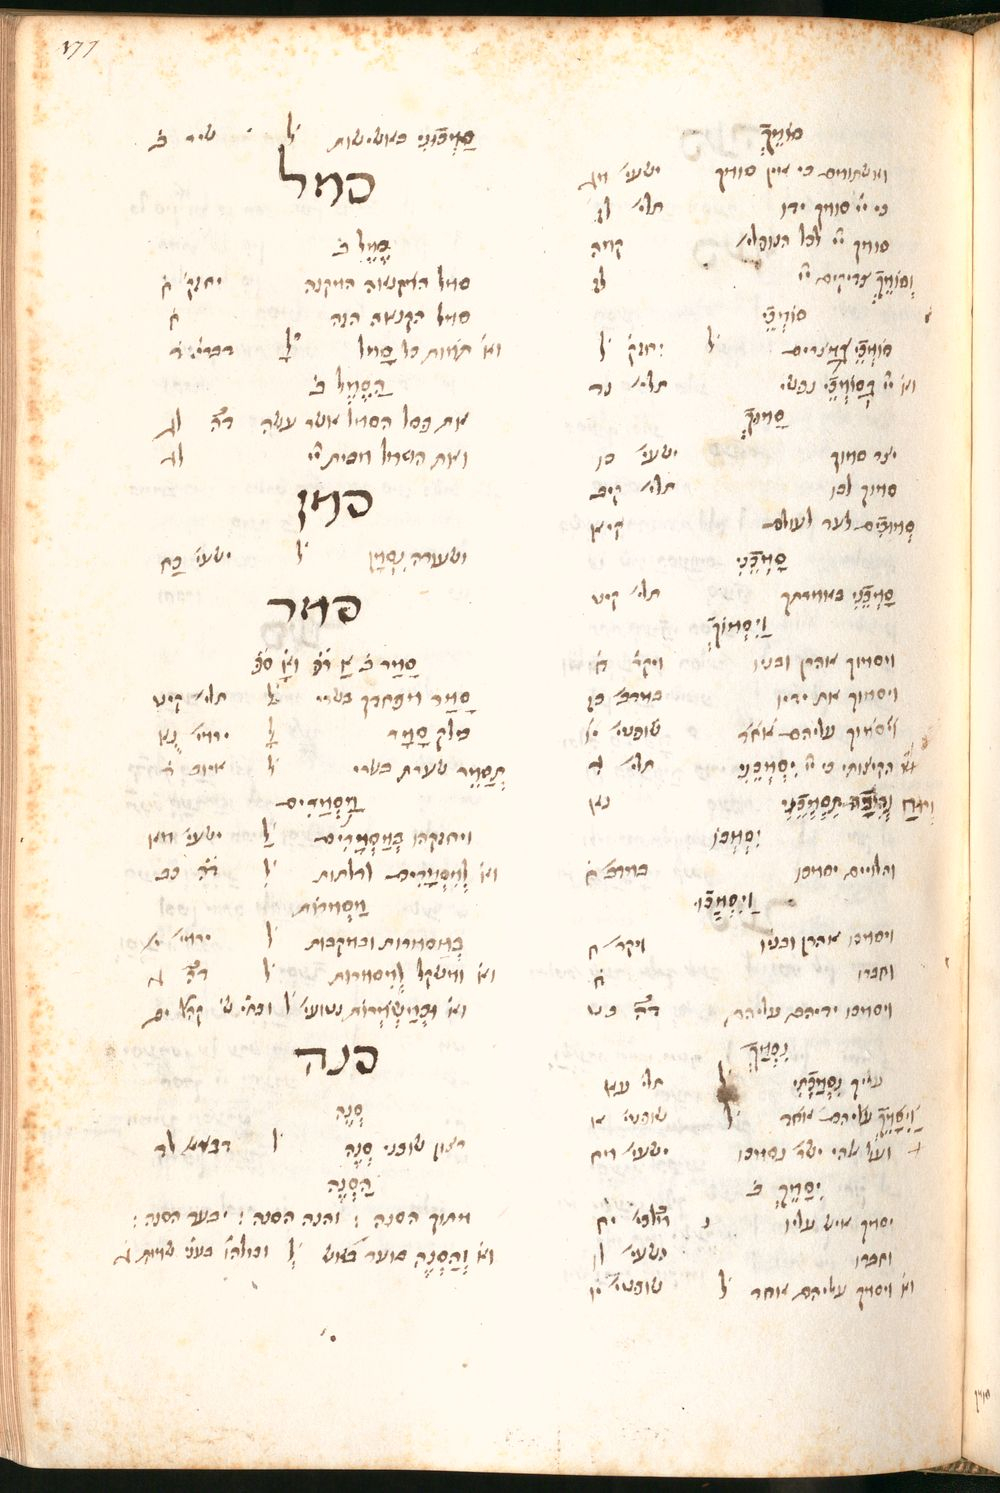 177
סוֹמֵךְ
ואשתומם כי אין סומך ישעי׳ סג
כי יי׳ סומך ידו תלי׳ לז
סומך יי׳ לכל הנופלי׳ קמה
וְסוֹמֵךְ צדיקים יי׳ לז
סוֹמְכֵי
סוֹמְכֵי מצרים ל׳ יחזק׳ ל
וא׳ יי׳ בְּסוֹמְכֵי נפשי תלי׳ נד
סָמוּךְ
יצר סמוך ישעי׳ כו
סמוך לבו תלי׳ קיב
סְמוּכִים לעד לעולם קיא
סָמְכֵנִי
סָמְכֵנִי כאמרתך תלי׳ קיט
וַיִּסְמוֹךְ
ויסמוך אהרן ובניו ויקר׳ ח
ויסמוך את ידיו במדב׳ כז
ויסמוך עליהם אחר שופטי׳ יו
הקיצותי כי יי׳ יִסְמְכֵנִי תלי׳ ג
ורוח נְדִיבָה תִסְמְכֵנִי נא
יִסְמְכוּ
והלויים יסמכו במדב׳ ח
וַיִּסְמְכוּ
ויסמכו אהרן ובניו ויקר׳ ח
וחברו ח
ויסמכו ידיהם עליהם דה׳ כט
נִסְמַךְ
עליך נִסְמַכְתִּי ל׳ תלי׳ עא
וַיִּסָּמֵךְ עליהם אחר ל׳ שופטי׳
ועל אלהי ישר׳ נסמכו ישעי׳ מח
יִסָּמֵךְ ב׳
יסמך איש עליו מלכי׳ יח
וחברו
וא׳ ויסמך עליהם אחר ל׳ שופטי׳ יו
סַמְּכוּנִי באשישות ל׳ שיר ב
סמל
סֵמֶל ב׳
סמל הקנאה המקנה יחזק׳ ח
סמל הקנאה הזה ח
וא׳ תמונת כל סָמֶל ל׳ דברי׳ ד
הַסֶּמֶל ב׳
את פסל הסמל אשר עשה דה׳ לג
ואת הסמל מבית יי׳ לג
סמן
ושעורה נִסְמָן ל׳ ישעי׳ כח
סמר
סָמַר ב׳
סָמַר מפחדך בשרי ל׳ תלי׳ קיט
כילק סָמָר ל׳ ירמי׳ נא
תְּסַמֵּר שערת בשרי ל׳ איוב ד
מַסְמְרִים
ויחזקהו בְּמַסְמְרִים ל׳ ישעי׳ מא
וא׳ לְמִסְמְרִים לדלתות ל׳ דה׳ כב
מַסְמְרוֹת
בְּמַסְמְרוֹת ובמקבות ל׳ ירמי׳ י
וא׳ ומשקל לְמִסְמְרוֹת ל׳ דה׳ ג
וא׳ וּכְמַשְׂמְרוֹת נטועי׳ ל׳ וכתי׳ ש׳ קהל׳ יב
סנה
סְנֶה
רצון שוכני סְנֶה ל׳ דברי׳ לג
הַסְּנֶה
מתוך הסנה : והנה הסנה : יבער הסנה :
וא׳ וְהַסְּנֶה בוער באש ל׳ וכולהו׳ בעני׳ שמות ג